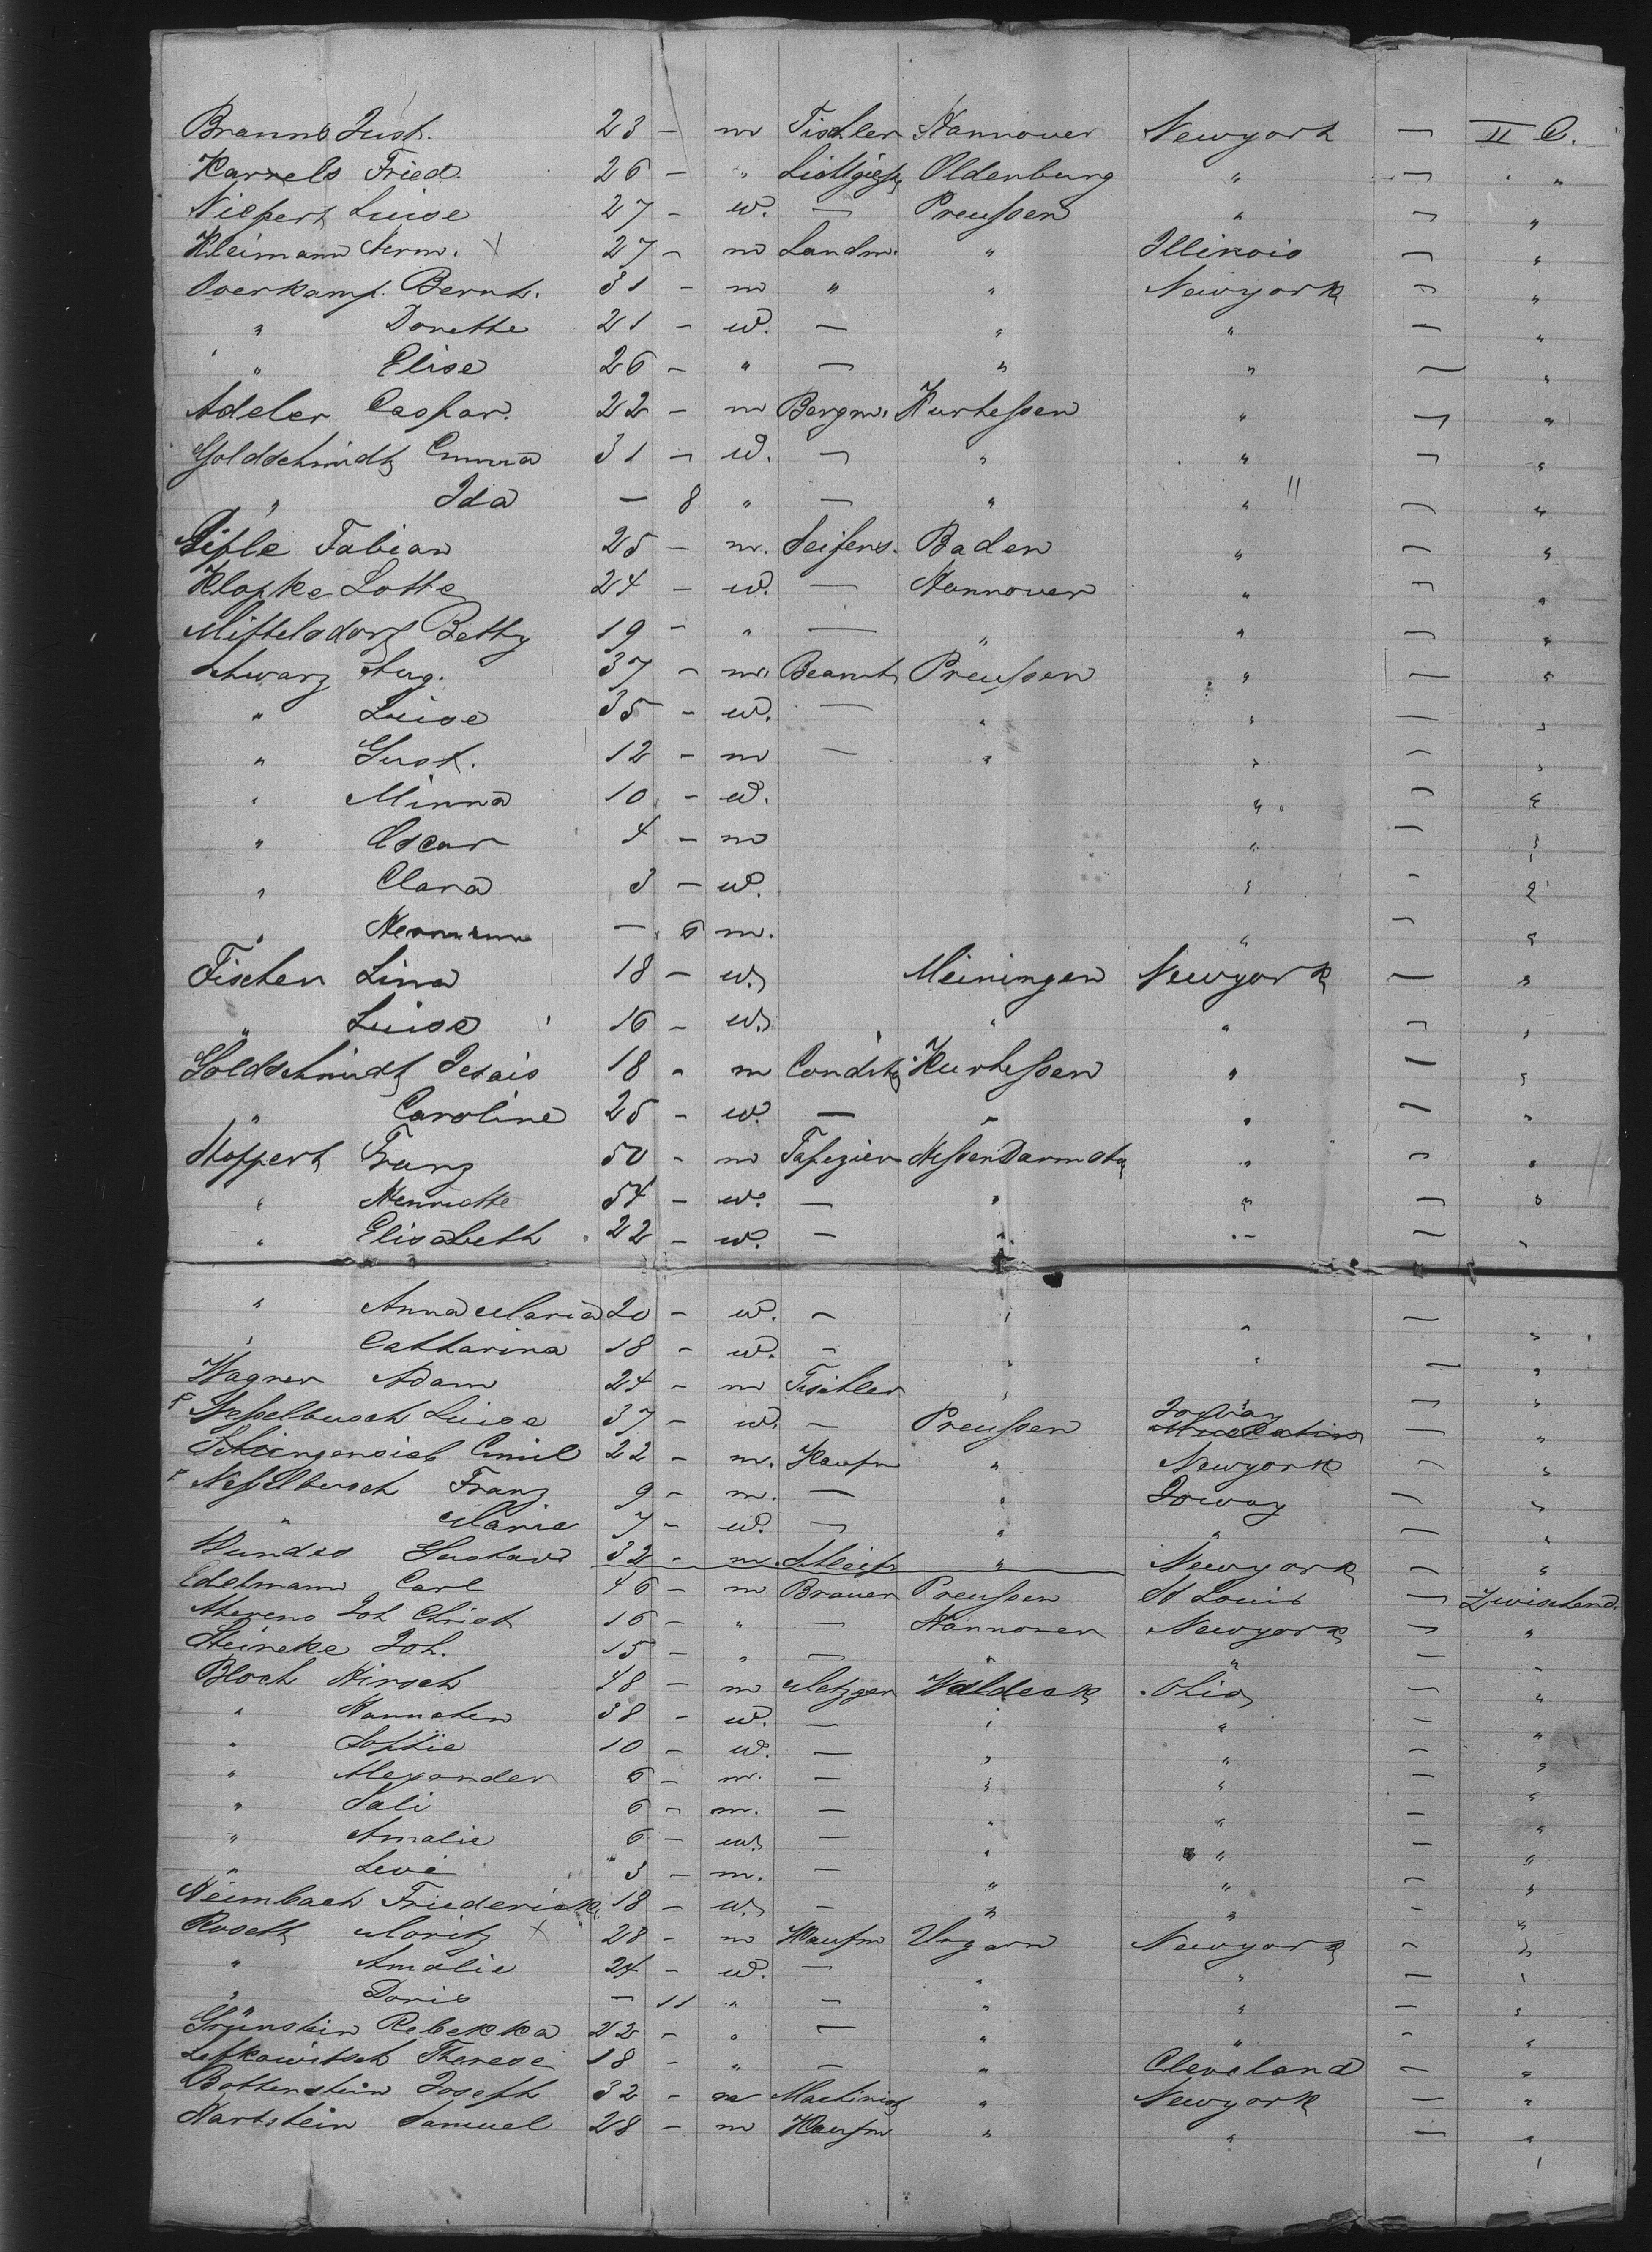 Brauns Just. 23 - m Tischler Hannover Newyork — II C.
Karrels Fried. 26 - " Oldenburg " — "
Niepert Luise 27 - w. — Preußen " — "
Kleimann Herm. X 27 - m Landm. " Illinois — "
Overkamp. Bernh. 31 - m " " Newyork — "
" Dorette 21 - w. — " " — "
" Elise 26 - " — " " — "
Adeler Caspar. 22 - m Bergm. Kurhessen " — "
Goldschmidt Emma 31 - w. — " " — "
" Ida — 8 " — " " — "
Fabian 25 - m. Seifens. Baden " — "
Klopke Lotte 24 - w. — Hannover " — "
Mittelsdorf Betty 19 - " — " " — "
Schwarz Aug. 37 - m. Beamt Preußen " — "
" Luise 35 - w. — " " — "
" Gust. 12 - m — " " — "
" Minna 10 - w. " — "
" Oscar 4 - m " — "
" Clara 3 - w. " — "
" Hermann — 6 m. " — "
Fischer Lina 18 - w. Meiningen Newyork — "
" Luise 16 - w. " " — "
Goldschmidt Jesais 18 - m Condit. Kurhessen " — "
" Caroline 25 - w. — " " — "
Hoppert Franz 50 - m Tapezier Hessen Darmst. " — "
" Henriette 54 - w. — " " — "
" Elisabeth 22 - w. — " " — "
" Anna Maria 20 - w. — " " — "
" Catharina 18 - w. — " " — "
Wagner Adam 24 - m Tischler " — "
Nesselbusch Luise 37 - w. — Preußen Joway — "
Emil 22 - m. Kaufm " Newyork — "
Nesselbusch Franz 9 - m. — " Joway — "
" Maria 7 - w. — " " — "
Gustav 32 - m. Schleif " Newyork — "
Edelmann Carl 46 - m Brauer Preußen St Louis — Zwischend.
Joh Christ 16 - " — Hannover Newyork — "
Steineke Joh. 15 - " — " " — "
Bloch Hirsch 48 - m Metzger Waldeck Ohio — "
" Hannchen 38 - w. — " " — "
" Sophie 10 - w. — " " — "
" Alexander 6 - m. — " " — "
" Sali 6 - m. — " " — "
" Amalie 6 - w. — " " — "
" Levi 3 - m. — " " — "
Heimbach Friederike 18 - w. — " " — "
Rosett Moritz X 28 - m Kaufm Ungarn Newyork — "
" Amalie 24 - w. — " " — "
" Doris — 11 " — " " — "
Grünstein Rebekka 22 - " — " " — "
Lefkowitsch Therese 18 - " — " Cleveland — "
Bottenstein Joseph 32 - m Machinist " Newyork — "
Hartstein Samuel 28 - m Kaufm " " — "